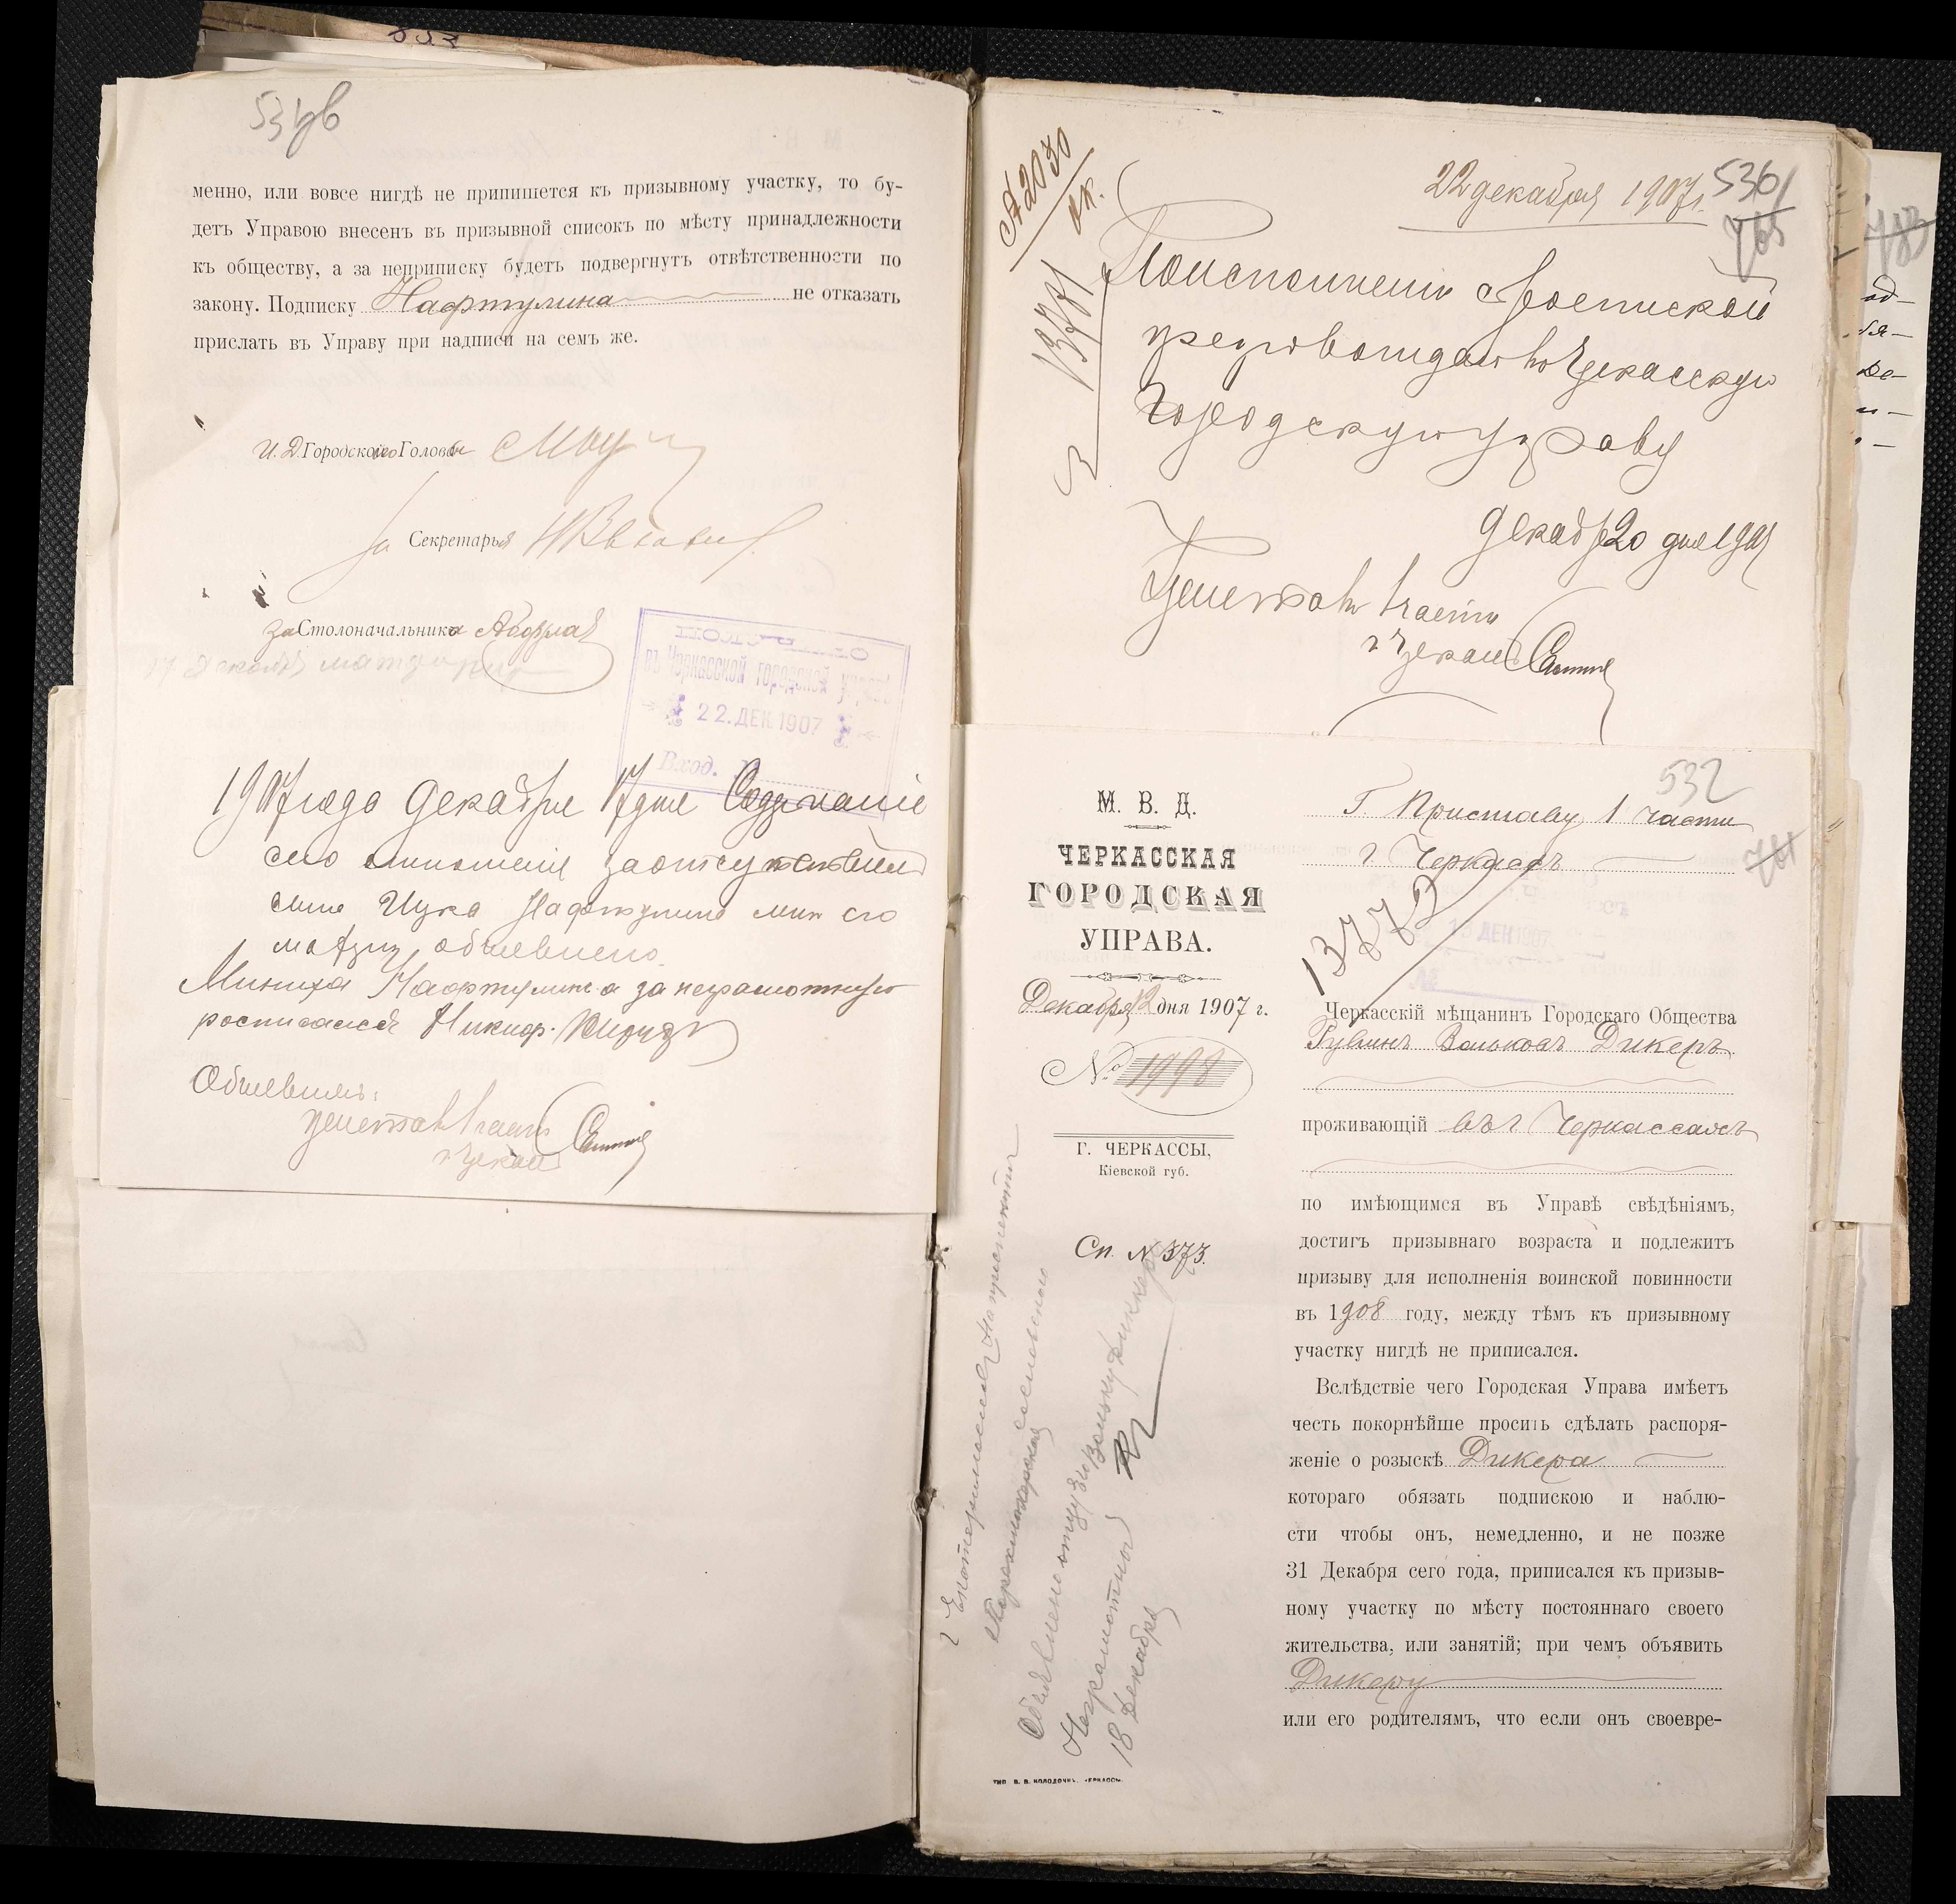 менно, или вовсе нигдѣ не припишется къ призывному участку, то бу-
детъ Управою внесенъ въ призывной списокъ по мѣсту принадлежности
къ обществу, а за неприписку будетъ подвергнутъ отвѣтственности по
закону. Подписку Нафтулина не отказать
прислать въ Управу при надписи на семъ же.
И. Д. Городского Головы
за Секретаря
за Столоначальника
въ Черкасской городской управѣ
22. ДЕК 1907
Вход.
1907 года Декабря 17 дня Содержание
сего отношенія за отсутствіем
сына Ицка Нафтулина мнѣ его
матери, объявлено
Миниха Нафтулина а за неграмотную
росписался Никиф.
Объявилъ:
22 декабря 1907 г.
536
765
А 2030
13781
По исполненіи с роспиской
препровождаю въ Черкасскую
Городскую управу
Декабря 20 дня 1907
532
761
М. В. Д.
ЧЕРКАССКАЯ
ГОРОДСКАЯ
УПРАВА.
Декабря 12 дня 1907 г.
№ 1998
Г. ЧЕРКАССЫ,
Кіевской губ.
Сп. № 373.
Г. Приставу 1 части
г. Черкасъ
15 ДЕК 1907
Черкасскій мѣщанинъ Городскаго Общества
Рувинъ Вольковъ Дикеръ
проживающій въ г. Черкассахъ
по имѣющимся въ Управѣ свѣдѣніямъ,
достигъ призывнаго возраста и подлежитъ
призыву для исполненія воинской повинности
въ 1908 году, между тѣмъ къ призывному
участку нигдѣ не приписался.
Вслѣдствіе чего Городская Управа имѣетъ
честь покорнѣйше просить сдѣлать распоря-
женіе о розыскѣ Дикера
котораго обязать подпискою и наблю-
сти чтобы онъ, немедленно, и не позже
31 Декабря сего года, приписался къ призыв-
ному участку по мѣсту постояннаго своего
жительства, или занятій; при чемъ объявить
Дикеру
или его родителямъ, что если онъ своевре-
Объявлено отцу его Вольку Диккеръ
Неграмотный
18 Декабря